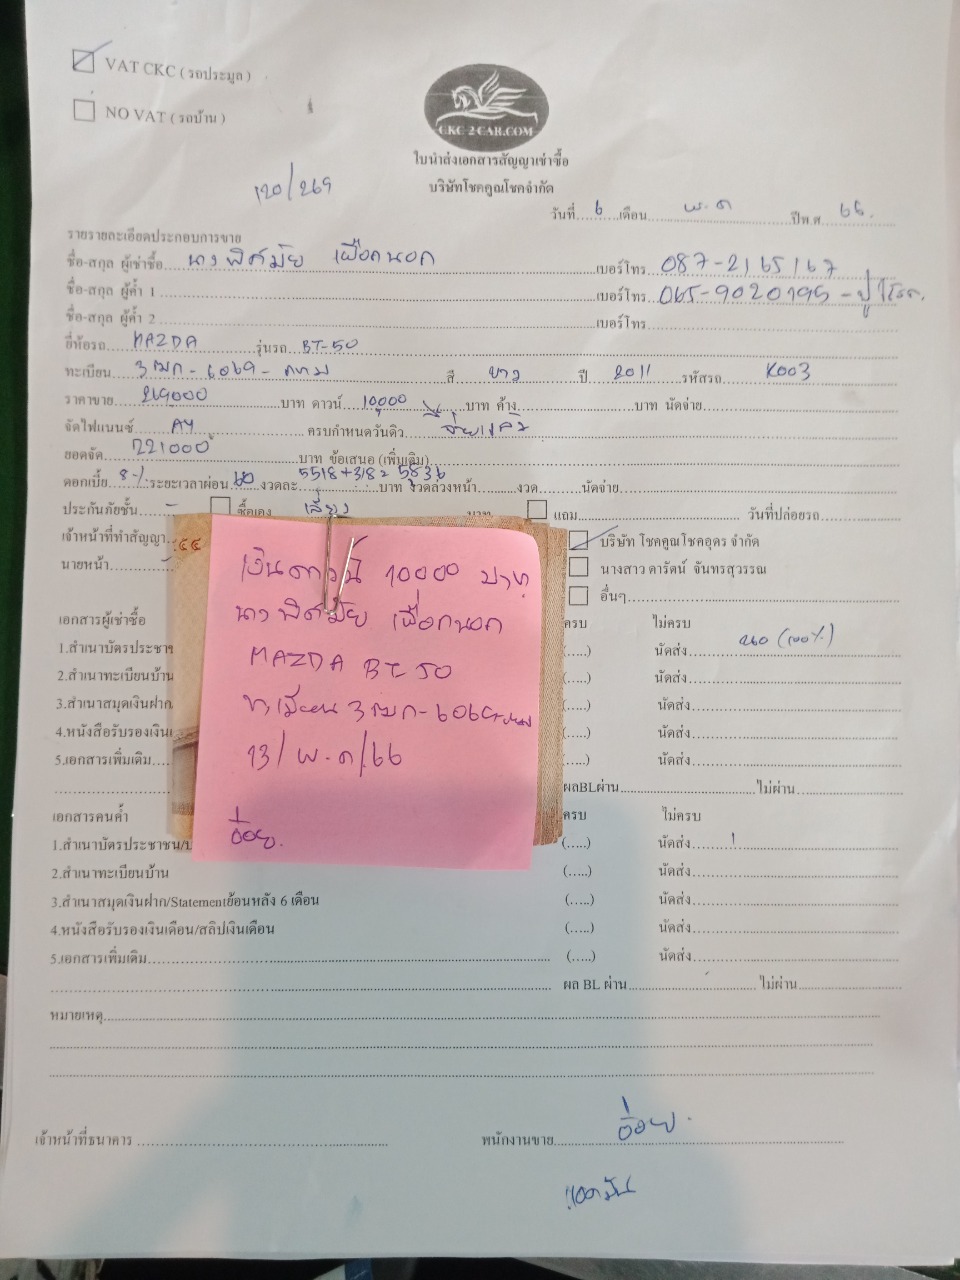 VAT CKC ( รถประมูล )
NO VAT ( รถบ้าน )
CKC-2CAR.COM
ใบนำส่งเอกสารสัญญาเช่าซื้อ
บริษัทโชคคูณโชคจำกัด
120/269
วันที่ 6 เดือน พ.ค ปีพ.ศ. 66.
รายรายละเอียดประกอบการขาย
ชื่อ-สกุล ผู้เช่าซื้อ นางพิศมัย เผือกนอก เบอร์โทร 087-2165167
ชื่อ-สกุล ผู้ค้ำ 1 เบอร์โทร 065-9020195 - ปู่
ชื่อ-สกุล ผู้ค้ำ 2 เบอร์โทร
ยี่ห้อรถ MAZDA รุ่นรถ BT-50
ทะเบียน 3ฒก-6069-กทม สี ขาว ปี 2011 รหัสรถ K003
ราคาขาย 269000 บาท ดาวน์ 10000 บาท ค้าง บาท นัดจ่าย
จัดไฟแนนซ์ AY ครบกำหนดวันดิว
ยอดจัด 221000 บาท ข้อเสนอ (เพิ่มเติม)
ดอกเบี้ย 8% ระยะเวลาผ่อน 60 งวดละ 5518+318= 5836 บาท งวดล่วงหน้า งวด นัดจ่าย
ประกันภัยชั้น - ซื้อเอง บาท แถม วันที่ปล่อยรถ
เจ้าหน้าที่ทำสัญญา บริษัท โชคคูณโชคอุดร จำกัด
นายหน้า นางสาว ดารัตน์ จันทรสุวรรณ
อื่นๆ
๕๕
เงินดาวน์ 10000 บาท
นางพิศมัย เผือกนอก
MAZDA BT-50
ทะเบียน 3ฒก-6069-กทม
13/พ.ค/66
อ้อย.
เอกสารผู้เช่าซื้อ ครบ ไม่ครบ
1.สำเนาบัตรประชาช (.....) นัดส่ง 260 (100%)
2.สำเนาทะเบียนบ้าน (.....) นัดส่ง
3.สำเนาสมุดเงินฝาก (.....) นัดส่ง
4.หนังสือรับรองเงินเ (.....) นัดส่ง
5.เอกสารเพิ่มเติม (.....) นัดส่ง
ผลBLผ่าน ไม่ผ่าน
เอกสารคนค้ำ ครบ ไม่ครบ
1.สำเนาบัตรประชาชน/บ (.....) นัดส่ง
2.สำเนาทะเบียนบ้าน (.....) นัดส่ง
3.สำเนาสมุดเงินฝาก/Statementย้อนหลัง 6 เดือน (.....) นัดส่ง
4.หนังสือรับรองเงินเดือน/สลิปเงินเดือน (.....) นัดส่ง
5.เอกสารเพิ่มเติม (.....) นัดส่ง
ผล BL ผ่าน ไม่ผ่าน
หมายเหตุ
เจ้าหน้าที่ธนาคาร พนักงานขาย อ้อย.
แอดมิน